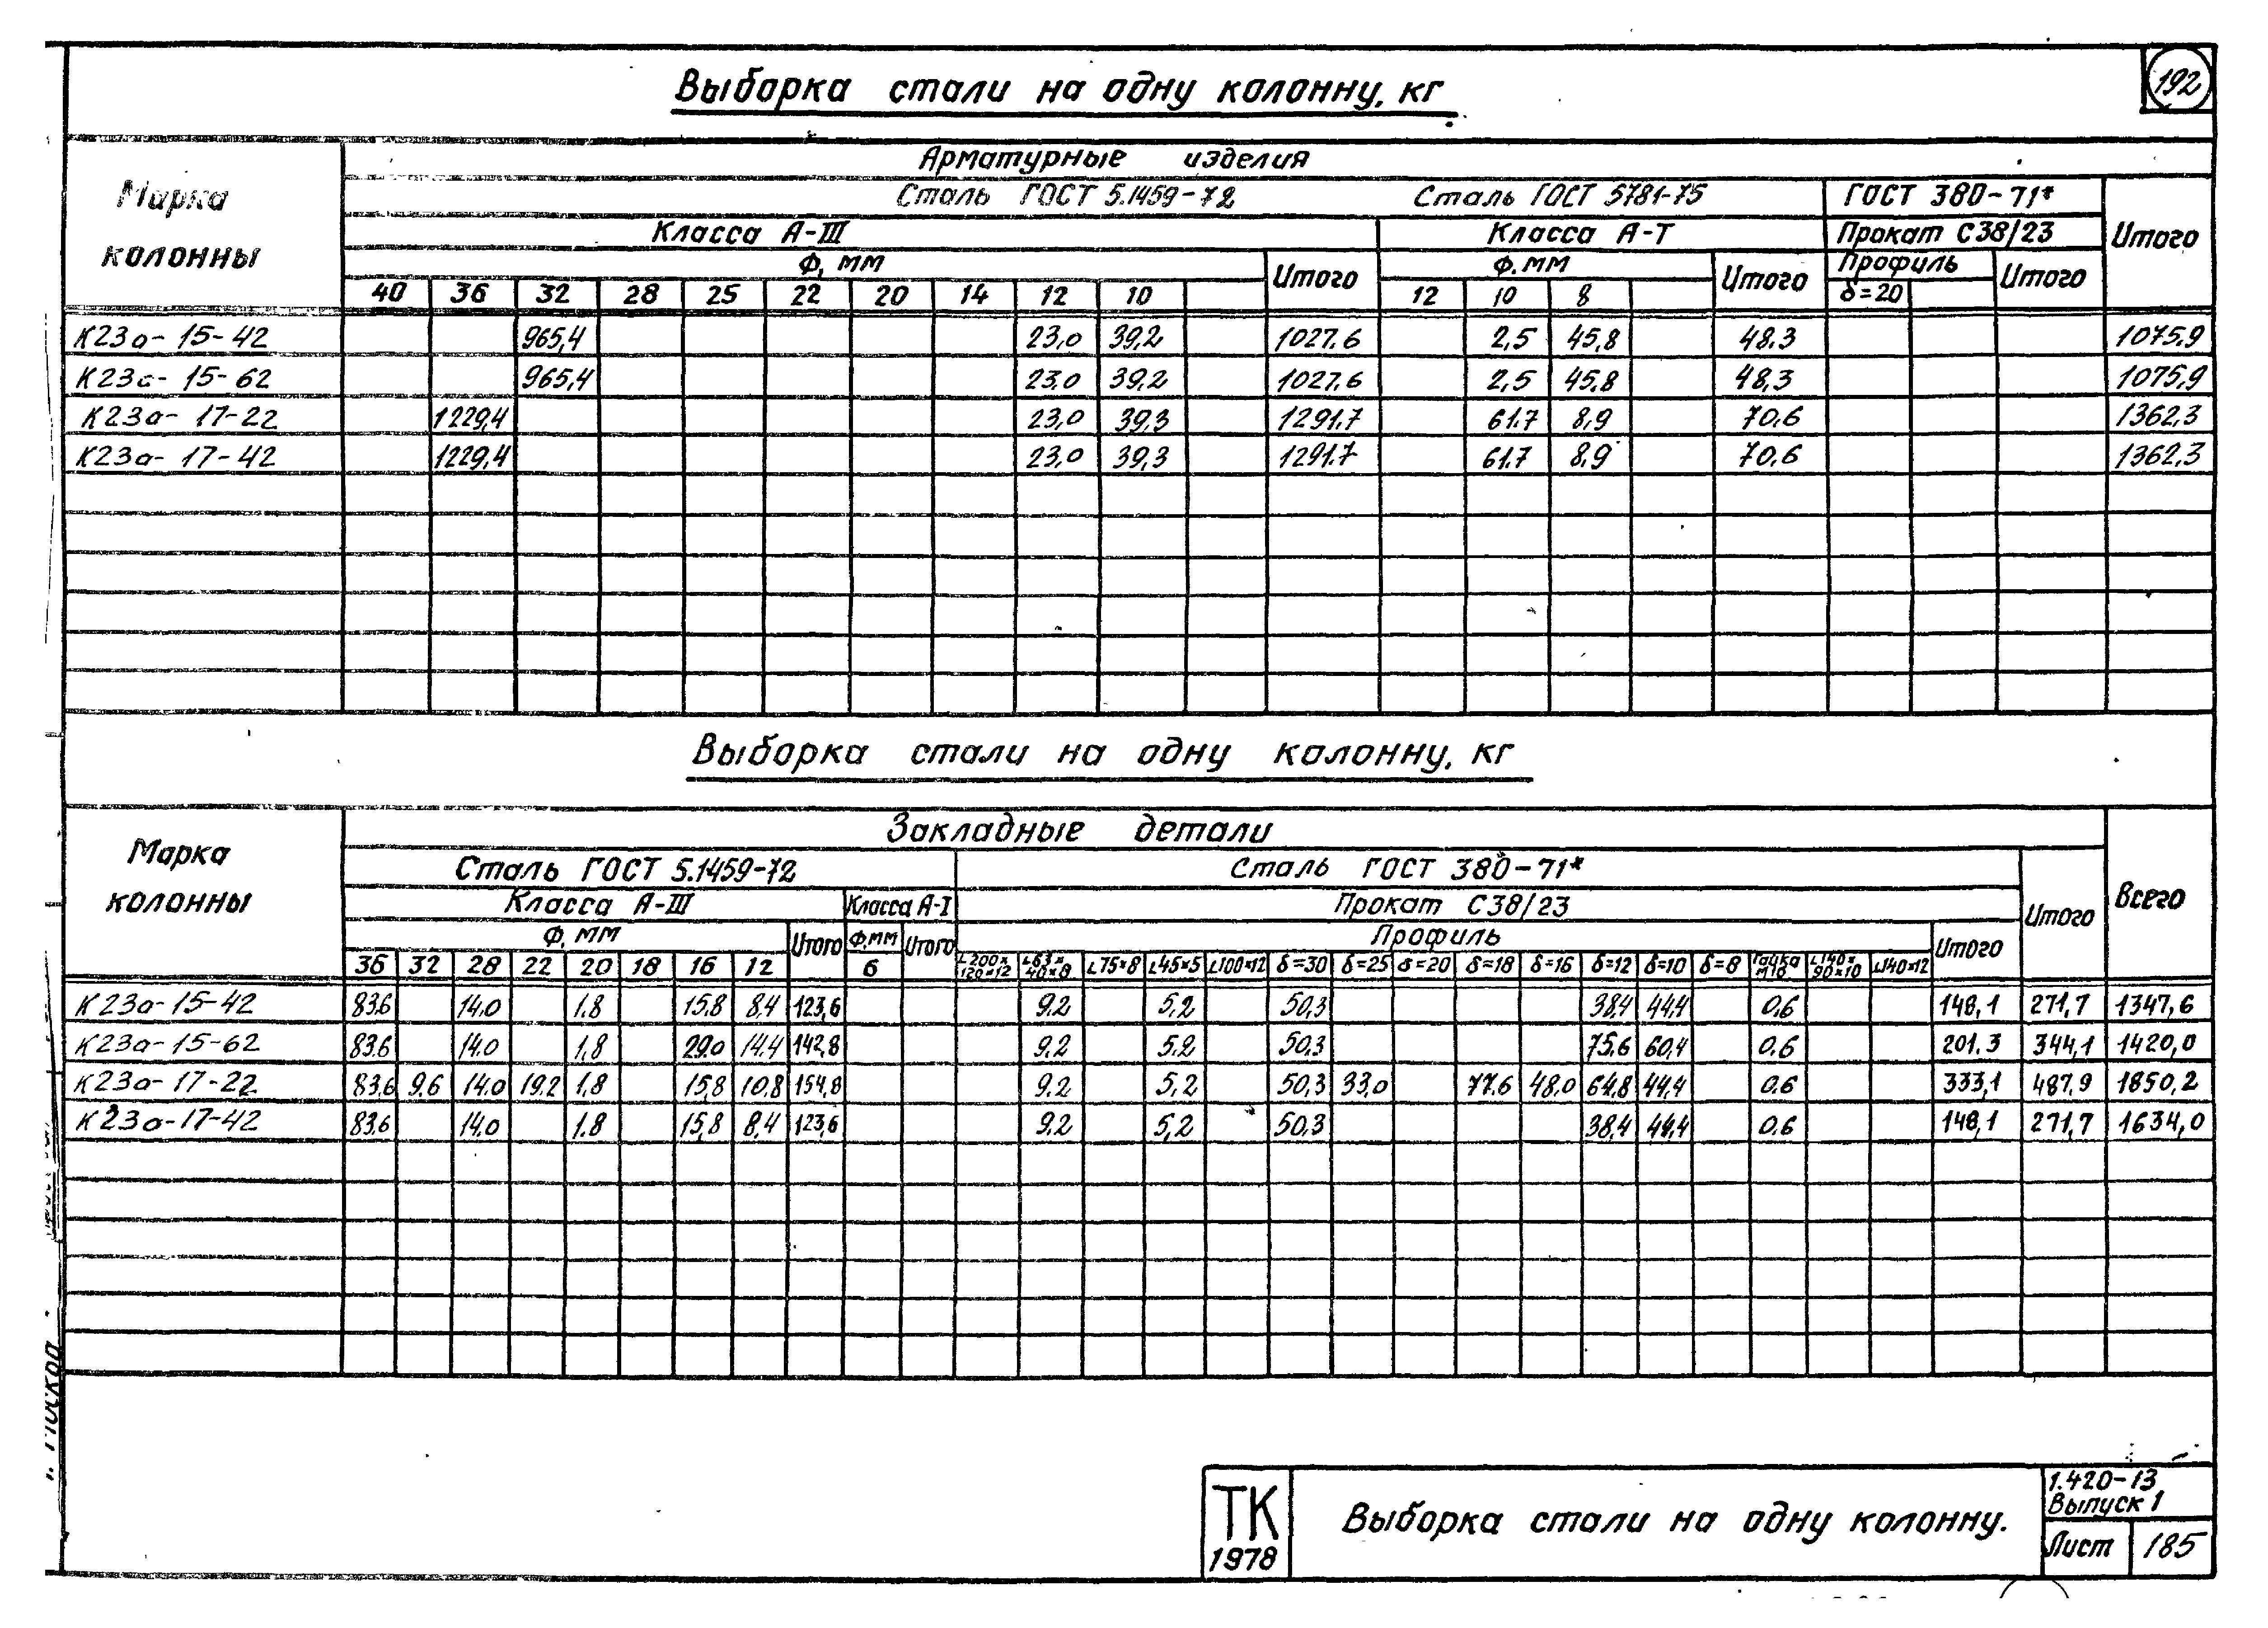 192
Выборка стали на одну колонну, кг
Марка колонны
Арматурные изделия
Сталь ГОСТ 5.1459-72 Сталь ГОСТ 5781-75 ГОСТ 380-71* Итого
Класса А-III Класса А-I Прокат С38/23
Ф, мм Итого Ф, мм Итого Профиль Итого
40 36 32 28 25 22 20 14 12 10 12 10 8 δ=20
К23а-15-42 965,4 23,0 39,2 1027,6 2,5 45,8 48,3 1075,9
К23а-15-62 965,4 23,0 39,2 1027,6 2,5 45,8 48,3 1075,9
К23а-17-22 1229,4 23,0 39,3 1291,7 61,7 8,9 70,6 1362,3
К23а-17-42 1229,4 23,0 39,3 1291,7 61,7 8,9 70,6 1362,3
Выборка стали на одну колонну, кг
Марка колонны
Закладные детали Всего
Сталь ГОСТ 5.1459-72 Сталь ГОСТ 380-71* Итого
Класса А-III Класса А-I Прокат С38/23
Ф, мм Итого Ф, мм Итого Профиль Итого
36 32 28 22 20 18 16 12 6 L200×120×12 L63×40×8 L75×8 L45×5 L100×12 δ=30 δ=25 δ=20 δ=18 δ=16 δ=12 δ=10 δ=8 Гайка М18 L140×90×10 L140×12
К23а-15-42 83,6 14,0 1,8 15,8 8,4 123,6 9,2 5,2 50,3 38,4 44,4 0,6 148,1 271,7 1347,6
К23а-15-62 83,6 14,0 1,8 29,0 14,4 142,8 9,2 5,2 50,3 75,6 60,4 0,6 201,3 344,1 1420,0
К23а-17-22 83,6 9,6 14,0 19,2 1,8 15,8 10,8 154,8 9,2 5,2 50,3 33,0 77,6 48,0 64,8 44,4 0,6 333,1 487,9 1850,2
К23а-17-42 83,6 14,0 1,8 15,8 8,4 123,6 9,2 5,2 50,3 38,4 44,4 0,6 148,1 271,7 1634,0
г. Москва
ТК
1978
Выборка стали на одну колонну.
1.420-13
Выпуск 1
Лист 185